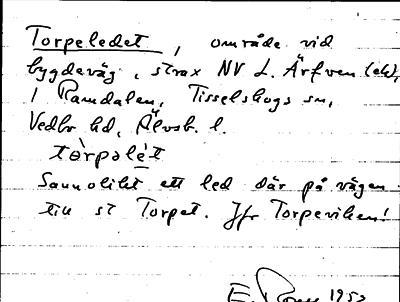 Torpeledet, område vid
bygdeväg, strax NV L. Ärfven (ek),
i Ramdalen, Tisselskogs sn,
Vedbo hd, Älvsb. l.
tòrpəlét
Sannolikt ett led där på vägen
till st Torpet. Jfr Torpeviken!
E. 1953